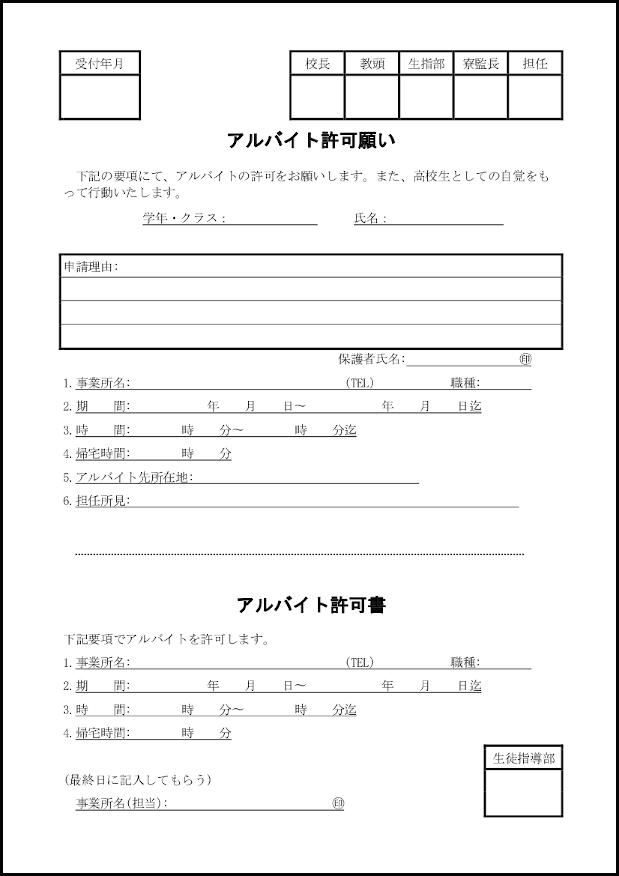 受付年月
校長 教頭 生指部 寮監長 担任
アルバイト許可願い
下記の要項にて、アルバイトの許可をお願いします。また、高校生としての自覚をも
って行動いたします。
学年・クラス： 氏名：
申請理由：
保護者氏名： ㊞
1. 事業所名： (TEL) 職種：
2. 期 間： 年 月 日～ 年 月 日迄
3. 時 間： 時 分～ 時 分迄
4. 帰宅時間： 時 分
5. アルバイト先所在地：
6. 担任所見：
アルバイト許可書
下記要項でアルバイトを許可します。
1. 事業所名： (TEL) 職種：
2. 期 間： 年 月 日～ 年 月 日迄
3. 時 間： 時 分～ 時 分迄
4. 帰宅時間： 時 分
生徒指導部
(最終日に記入してもらう)
事業所名(担当)： ㊞